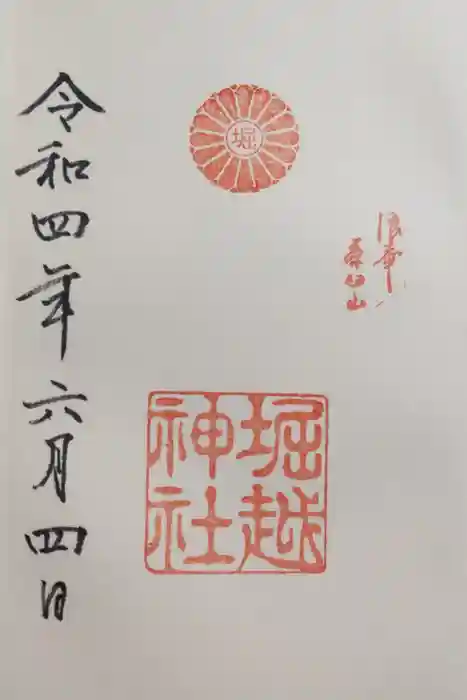 堀
浪華
茶臼山
堀越
神社
令和四年六月四日